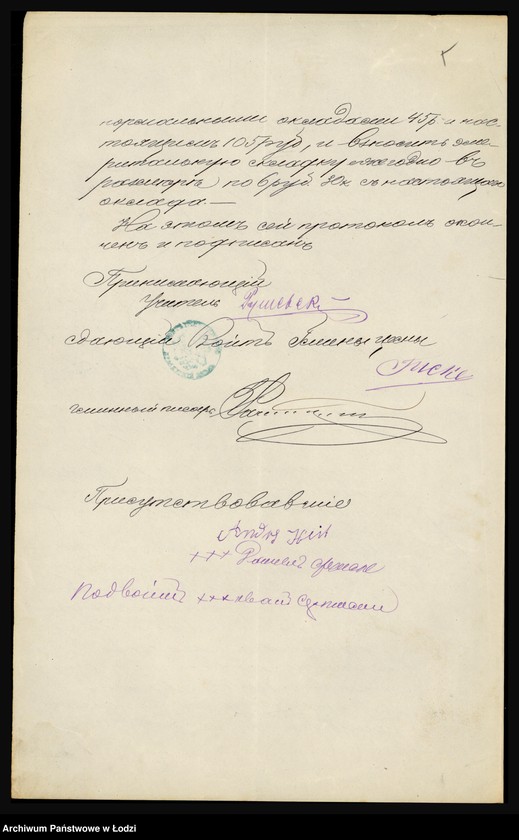 нормальными окладами 45 р. и нас-
тоящимъ 105 руб, и вносить эме-
ритальную складку ежегодно въ
размѣрѣ по 6 руб. 30 к съ настоящаго
оклада.—
На этомъ сей протоколъ окон-
ченъ и подписанъ
Принимающій
Учитель
сдающій Войтъ Гмины
гминный писарь
Присутствовавшіе
+++
Подвойтъ +++
Archiwum Państwowe w Łodzi